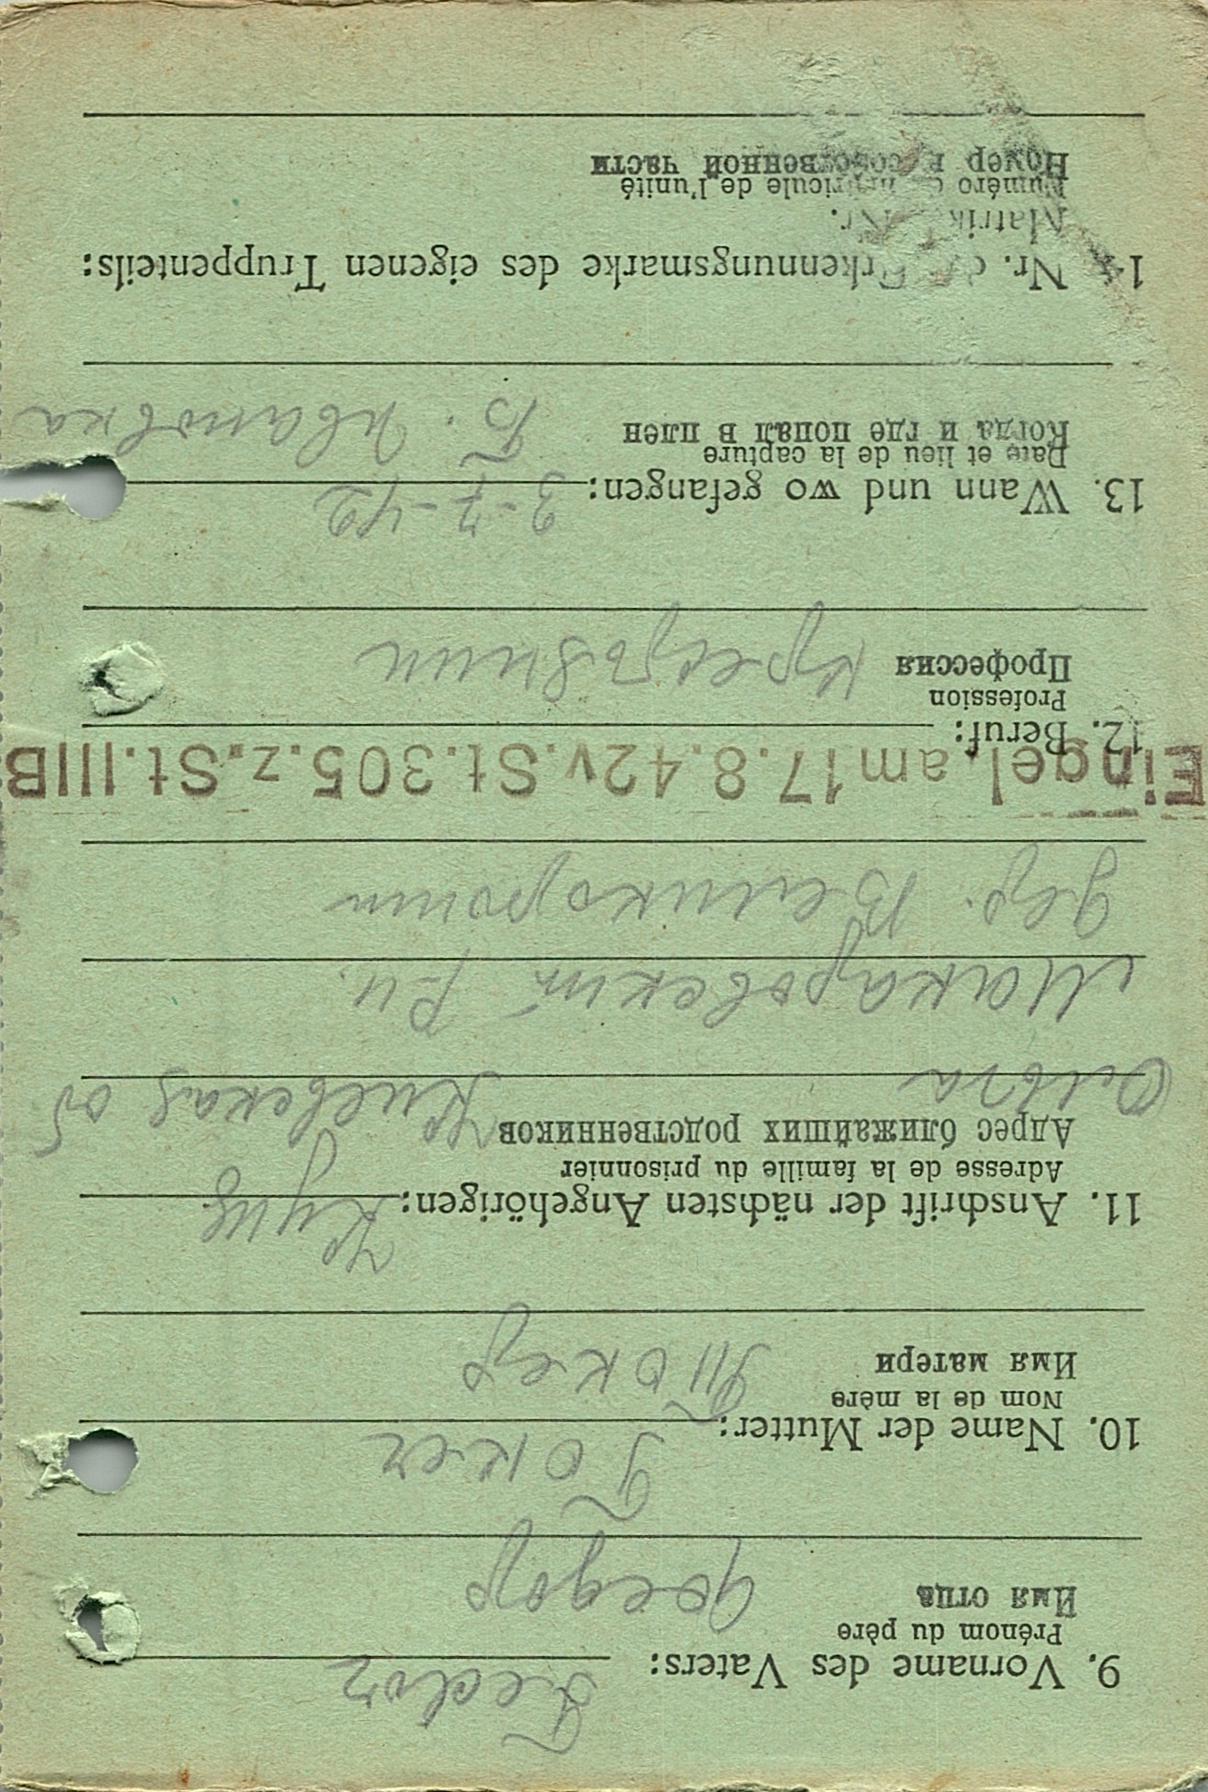 9. Vorname des Vaters: Fedor
Prénom du père
Имя отца Федор
10. Name der Mutter:
Nom de la mère
Имя матери
11. Anschrift der nächsten Angehörigen:
Adresse de la famille du prisonnier
Адрес ближайших родственников Киевская об
Ольга
Макаровский р-н.
дер.
Eingel. am 17.8.42 v. St. 305. z. St. III B
12. Beruf:
Profession
Профессия
13. Wann und wo gefangen: 3-7-42
Date et lieu de la capture
Когда и где попал в плен Б. Ивановка
14. Nr. der Erkennungsmarke des eigenen Truppenteils:
Matrik. Nr.
Numéro de matricule de l'unité
Номер в собственной части